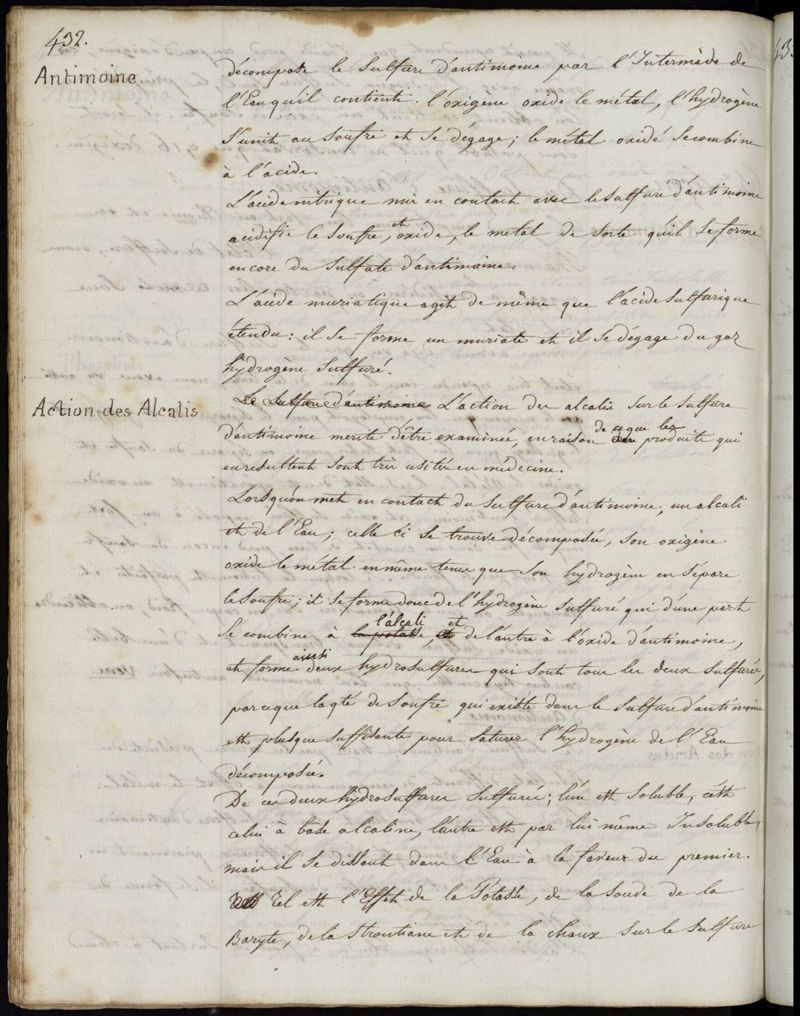 432.
Antimoine
décompose le sulfure d'antimoine par l'Intermède de
l'Eau qu'il contient. l'oxigène oxide le métal, l'hydrogène
s'unit au soufre et se dégage; le métal oxidé se combine
à l'acide.
L'acide nitrique mis en contact avec le sulfure d'antimoine
acidifie le soufre, et oxide, le métal de sorte qu'il se forme
encore du sulfate d'antimoine.
L'acide muriatique agit de même que l'acide sulfurique
étendu: il se forme un muriate et il se dégage du gaz
hydrogène sulfuré.
Action des Alcalis
Le sulfure d'antimoine L'action des alcalis sur le sulfure
d'antimoine merite d'être examinée, en raison de ce que les produits qui
en resultent sont très usités en médecine.
Lorsqu'on met en contact du sulfure d'antimoine, un alcali
et de l'Eau; celle ci se trouve décomposée, son oxigène
oxide le métal en même tems que son hydrogène en sépare
le soufre; il se forme donc de l'hydrogène sulfuré qui d'une part
se combine à la potasse l'alcali, et de l'autre à l'oxide d'antimoine,
et forme ainsi deux hydrosulfures qui sont tous les deux sulfurés,
parceque la qté de soufre qui existe dans le sulfure d'antimoine
est plus que suffisante pour saturer l'hydrogène de l'Eau
décomposée.
De ces deux hydrosulfures sulfurés; l'un est soluble, c'est
celui à base alcaline, l'autre est par lui même Insoluble,
mais il se dissout dans l'Eau à la faveur du premier.
Tel est l'Effet de la Potasse, de la soude de la
Baryte, de la strontiane et de la chaux sur le sulfure
43